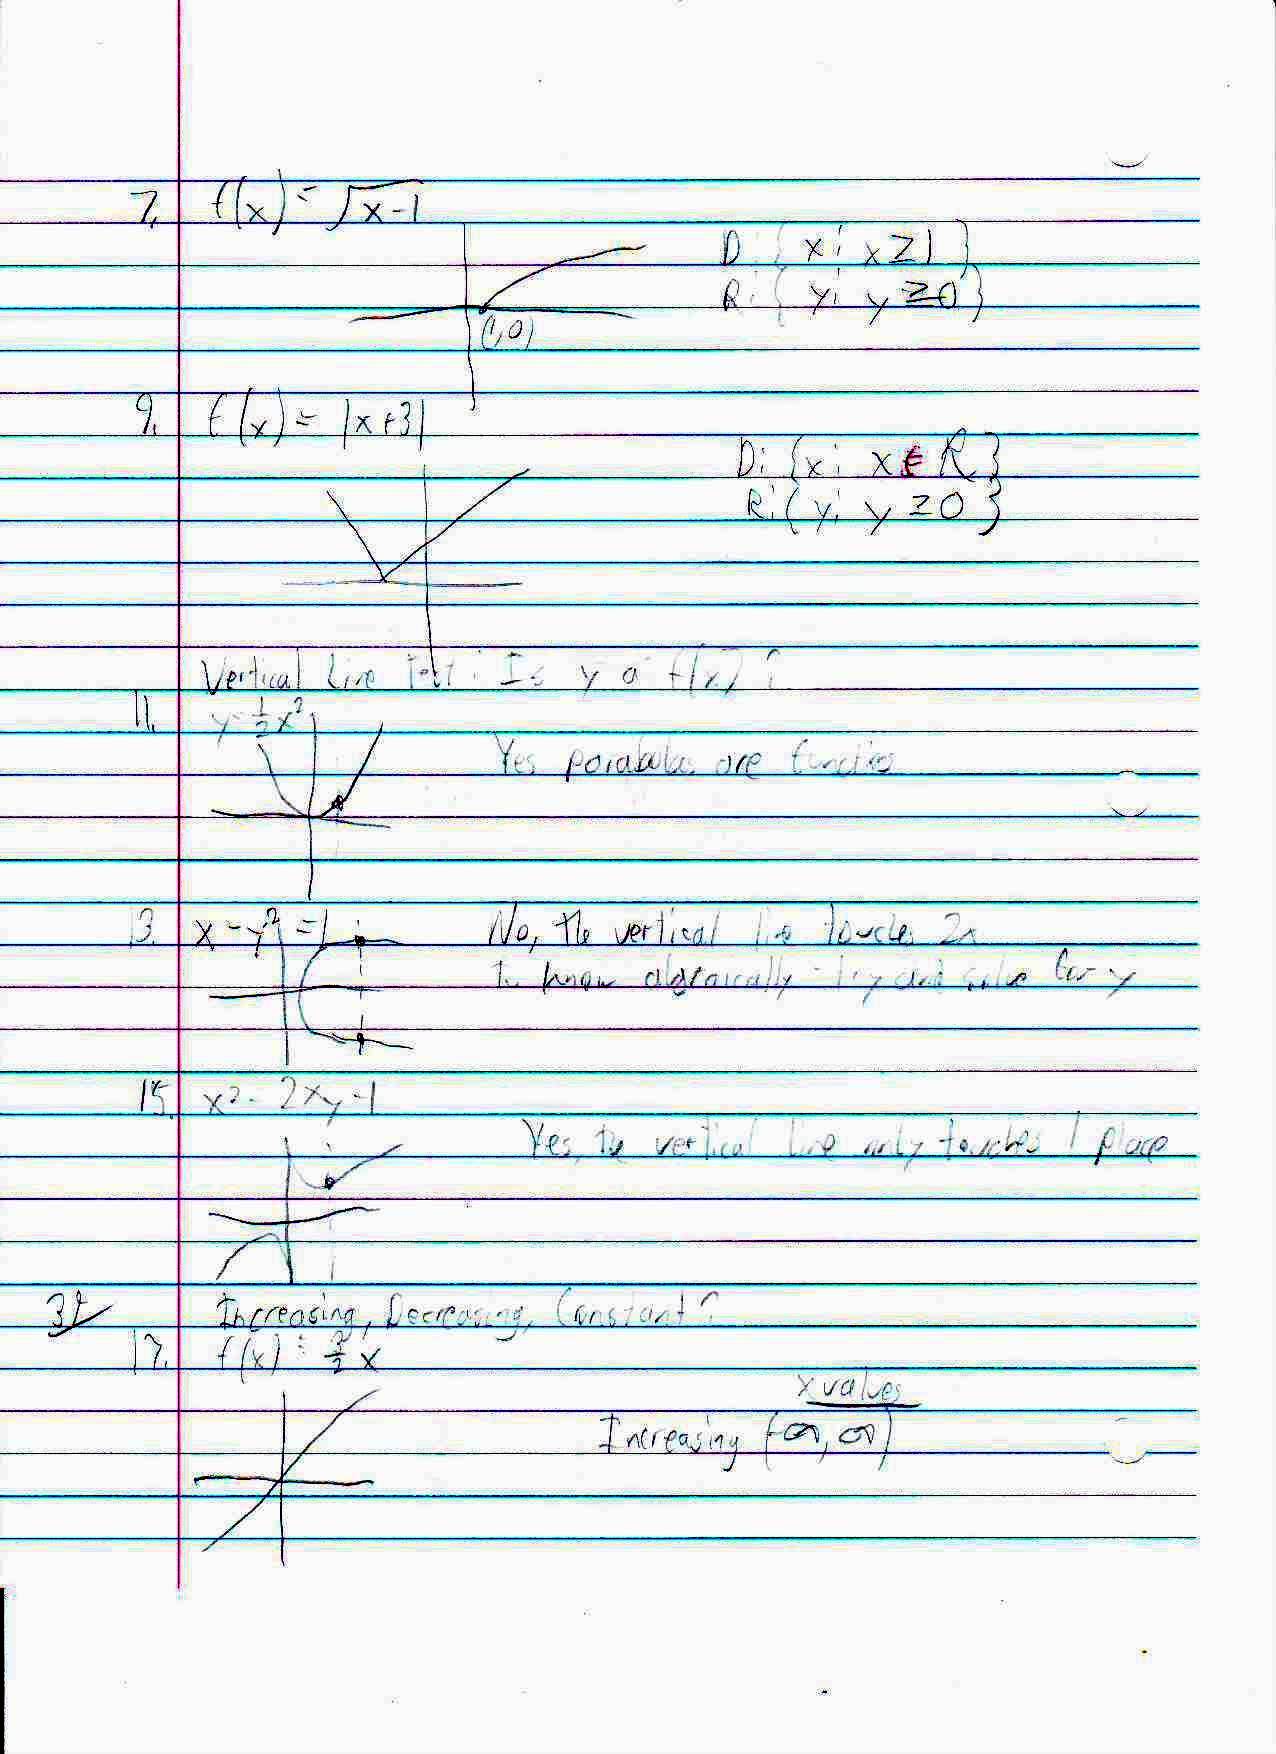 7. f(x) = √x-1
D: { x: x ≥ 1 }
R: { y: y ≥ 0 }
(1,0)
9. f(x) = |x+3|
D: {x: x ∈ R}
R: {y: y ≥ 0}
Vertical Line Test: Is y a f(x)?
11. y = 1/2 x²
Yes parabolas are
13. x - y² = 1
No, the vertical line touches 2x
to know try and solve for y
15. x² - 2xy - 1
Yes, the vertical line only touches 1 place
Increasing, Decreasing, Constant?
17. f(x) = 3/2 x
x values
Increasing (-∞, ∞)